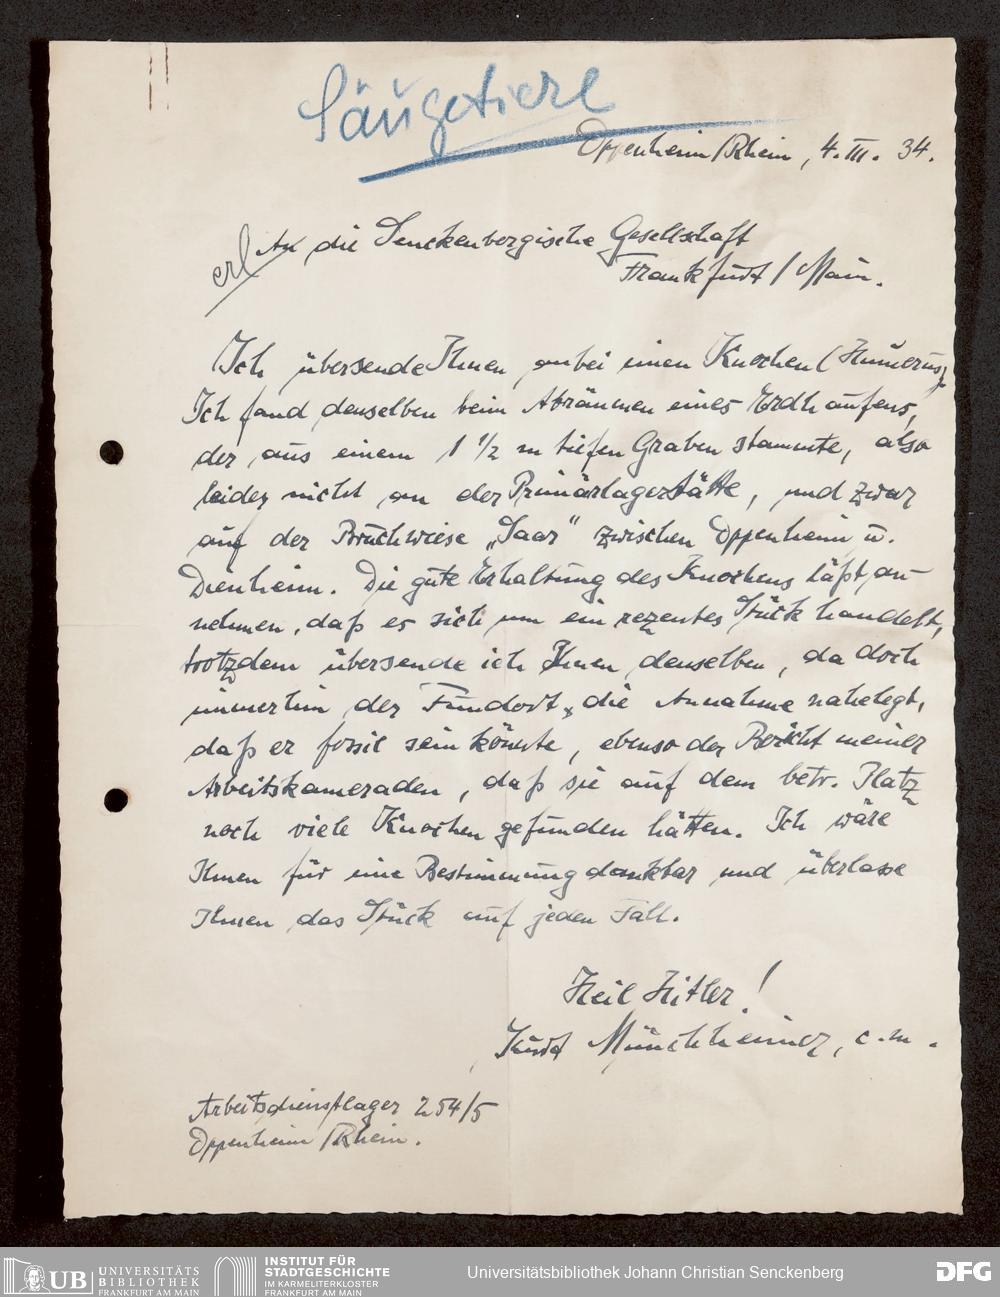 Säugetiere
Oppenheim/Rhein, 4. III. 34.
erl
An die Senckenbergische Gesellschaft
Frankfurt / Main.
Ich übersende Ihnen anbei einen Knochen (Humerus).
Ich fand denselben beim Abräumen eines Erdhaufens,
der aus einem 1 1/2 m tiefen Graben stammte, also
leider nicht an der Primärlagerstätte, und zwar
auf der Bruchwiese „Saar" zwischen Oppenheim u.
Dienheim. Die gute Erhaltung des Knochens läßt an-
nehmen, daß es sich um ein rezentes Stück handelt,
trotzdem übersende ich Ihnen denselben, da doch
immerhin der Fundort die Annahme nahelegt,
daß er fossil sein könnte, ebenso der Bericht meiner
Arbeitskameraden, daß sie auf dem betr. Platz
noch viele Knochen gefunden hätten. Ich wäre
Ihnen für eine Bestimmung dankbar und überlasse
Ihnen das Stück auf jeden Fall.
Heil Hitler!
Kurt Münchheimer, c. m.
Arbeitsdienstlager 254/5
Oppenheim/Rhein.
UB UNIVERSITÄTS
BIBLIOTHEK
FRANKFURT AM MAIN
INSTITUT FÜR
STADTGESCHICHTE
IM KARMELITERKLOSTER
FRANKFURT AM MAIN
Universitätsbibliothek Johann Christian Senckenberg
DFG